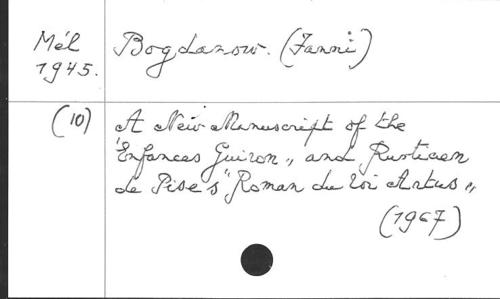 Mél Bogdanow. (Fanni)
1945.
(10) A New Manuscript of the
"Enfances Guiron„ and Rusticien
de Pise's "Roman du roi Artus„
(1967)